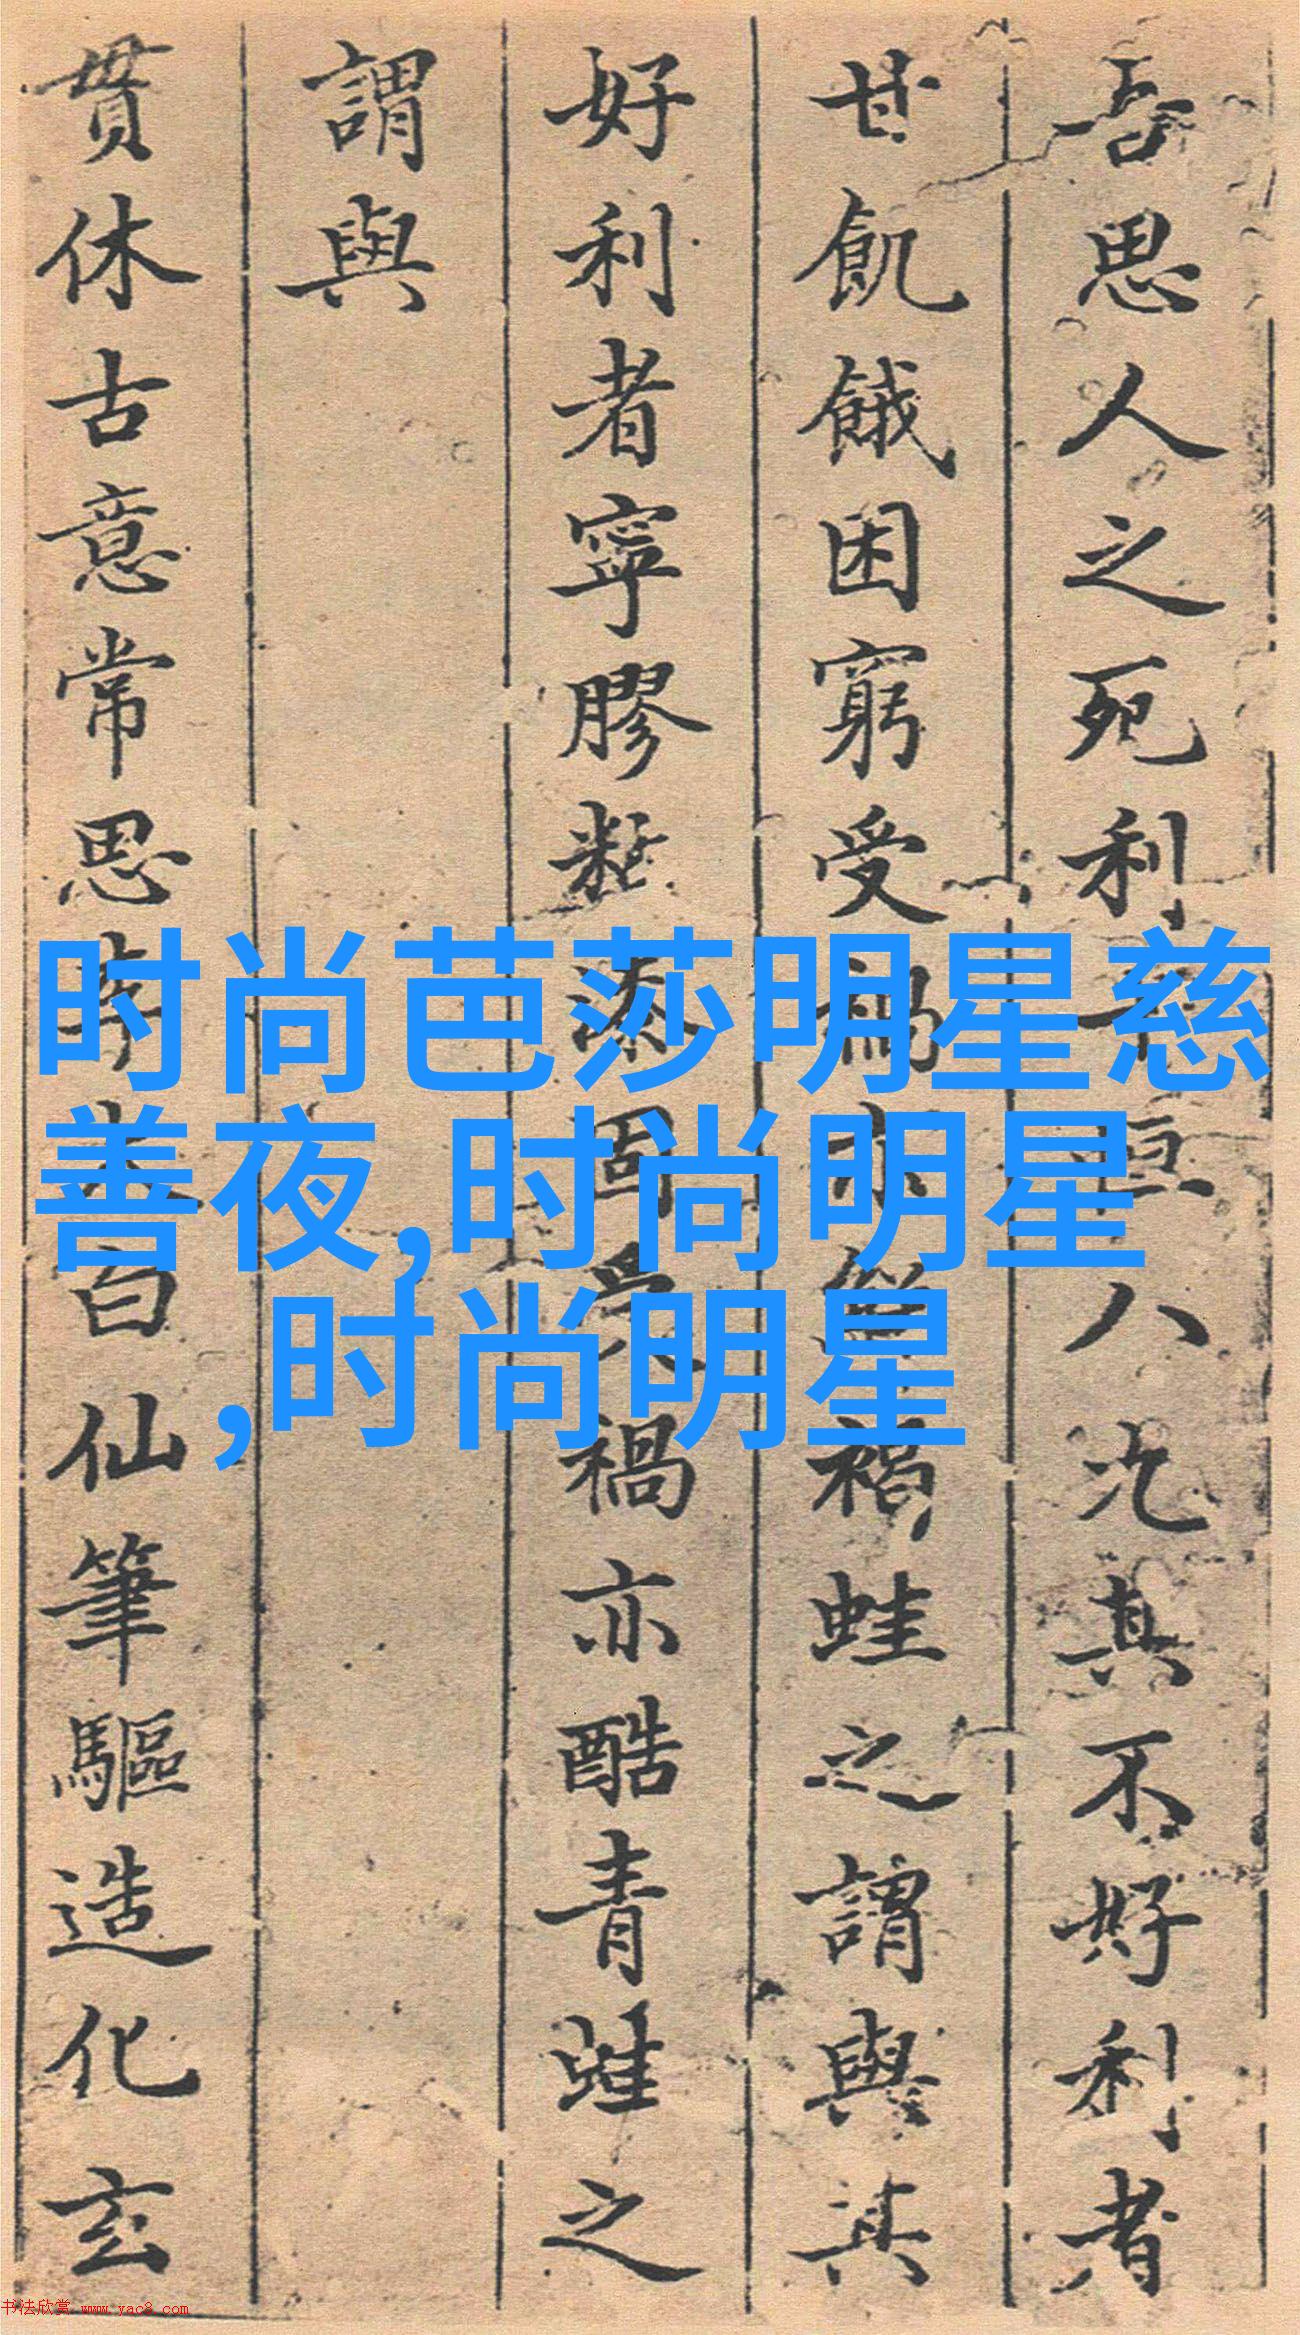 吾思人之死利恒八其不好利者
甘飢餓困窮受禍亦禍蛙之謂與其
好利者寧膠黏漆固受禍亦酷青蛙之
謂與
貫休古意常思李太白仙筆驅造化玄
时尚芭莎明星慈
善夜,时尚明星
,时尚明星
书法欣赏 www.yac8.com